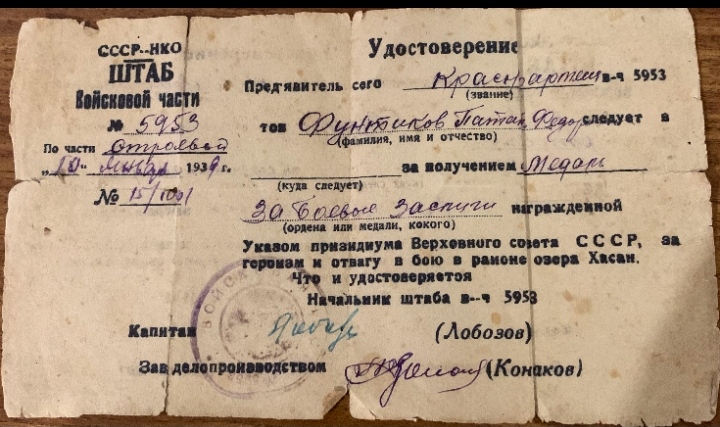 СССР-НКО
ШТАБ
Войсковой части
№ 5953
По части строевой
„10" январ 1939 г.
№ 15/1001
Удостоверение
Пред'явитель сего Красноармеец в-ч 5953
(звание)
тов Фунтиков Федор следует в
(фамилия, имя и отчество)
за получением Медали
(куда следует)
За Боевые Заслуги награжденной
(ордена или медали, какого)
Указом призидиума Верховного совета СССР, за
героизм и отвагу в бою в районе озера Хасан.
Что и удостоверяется
Начальник штаба в--ч 5953
Капитан (Лобозов)
Зав делопроизводством (Конаков)
ВОЙСК